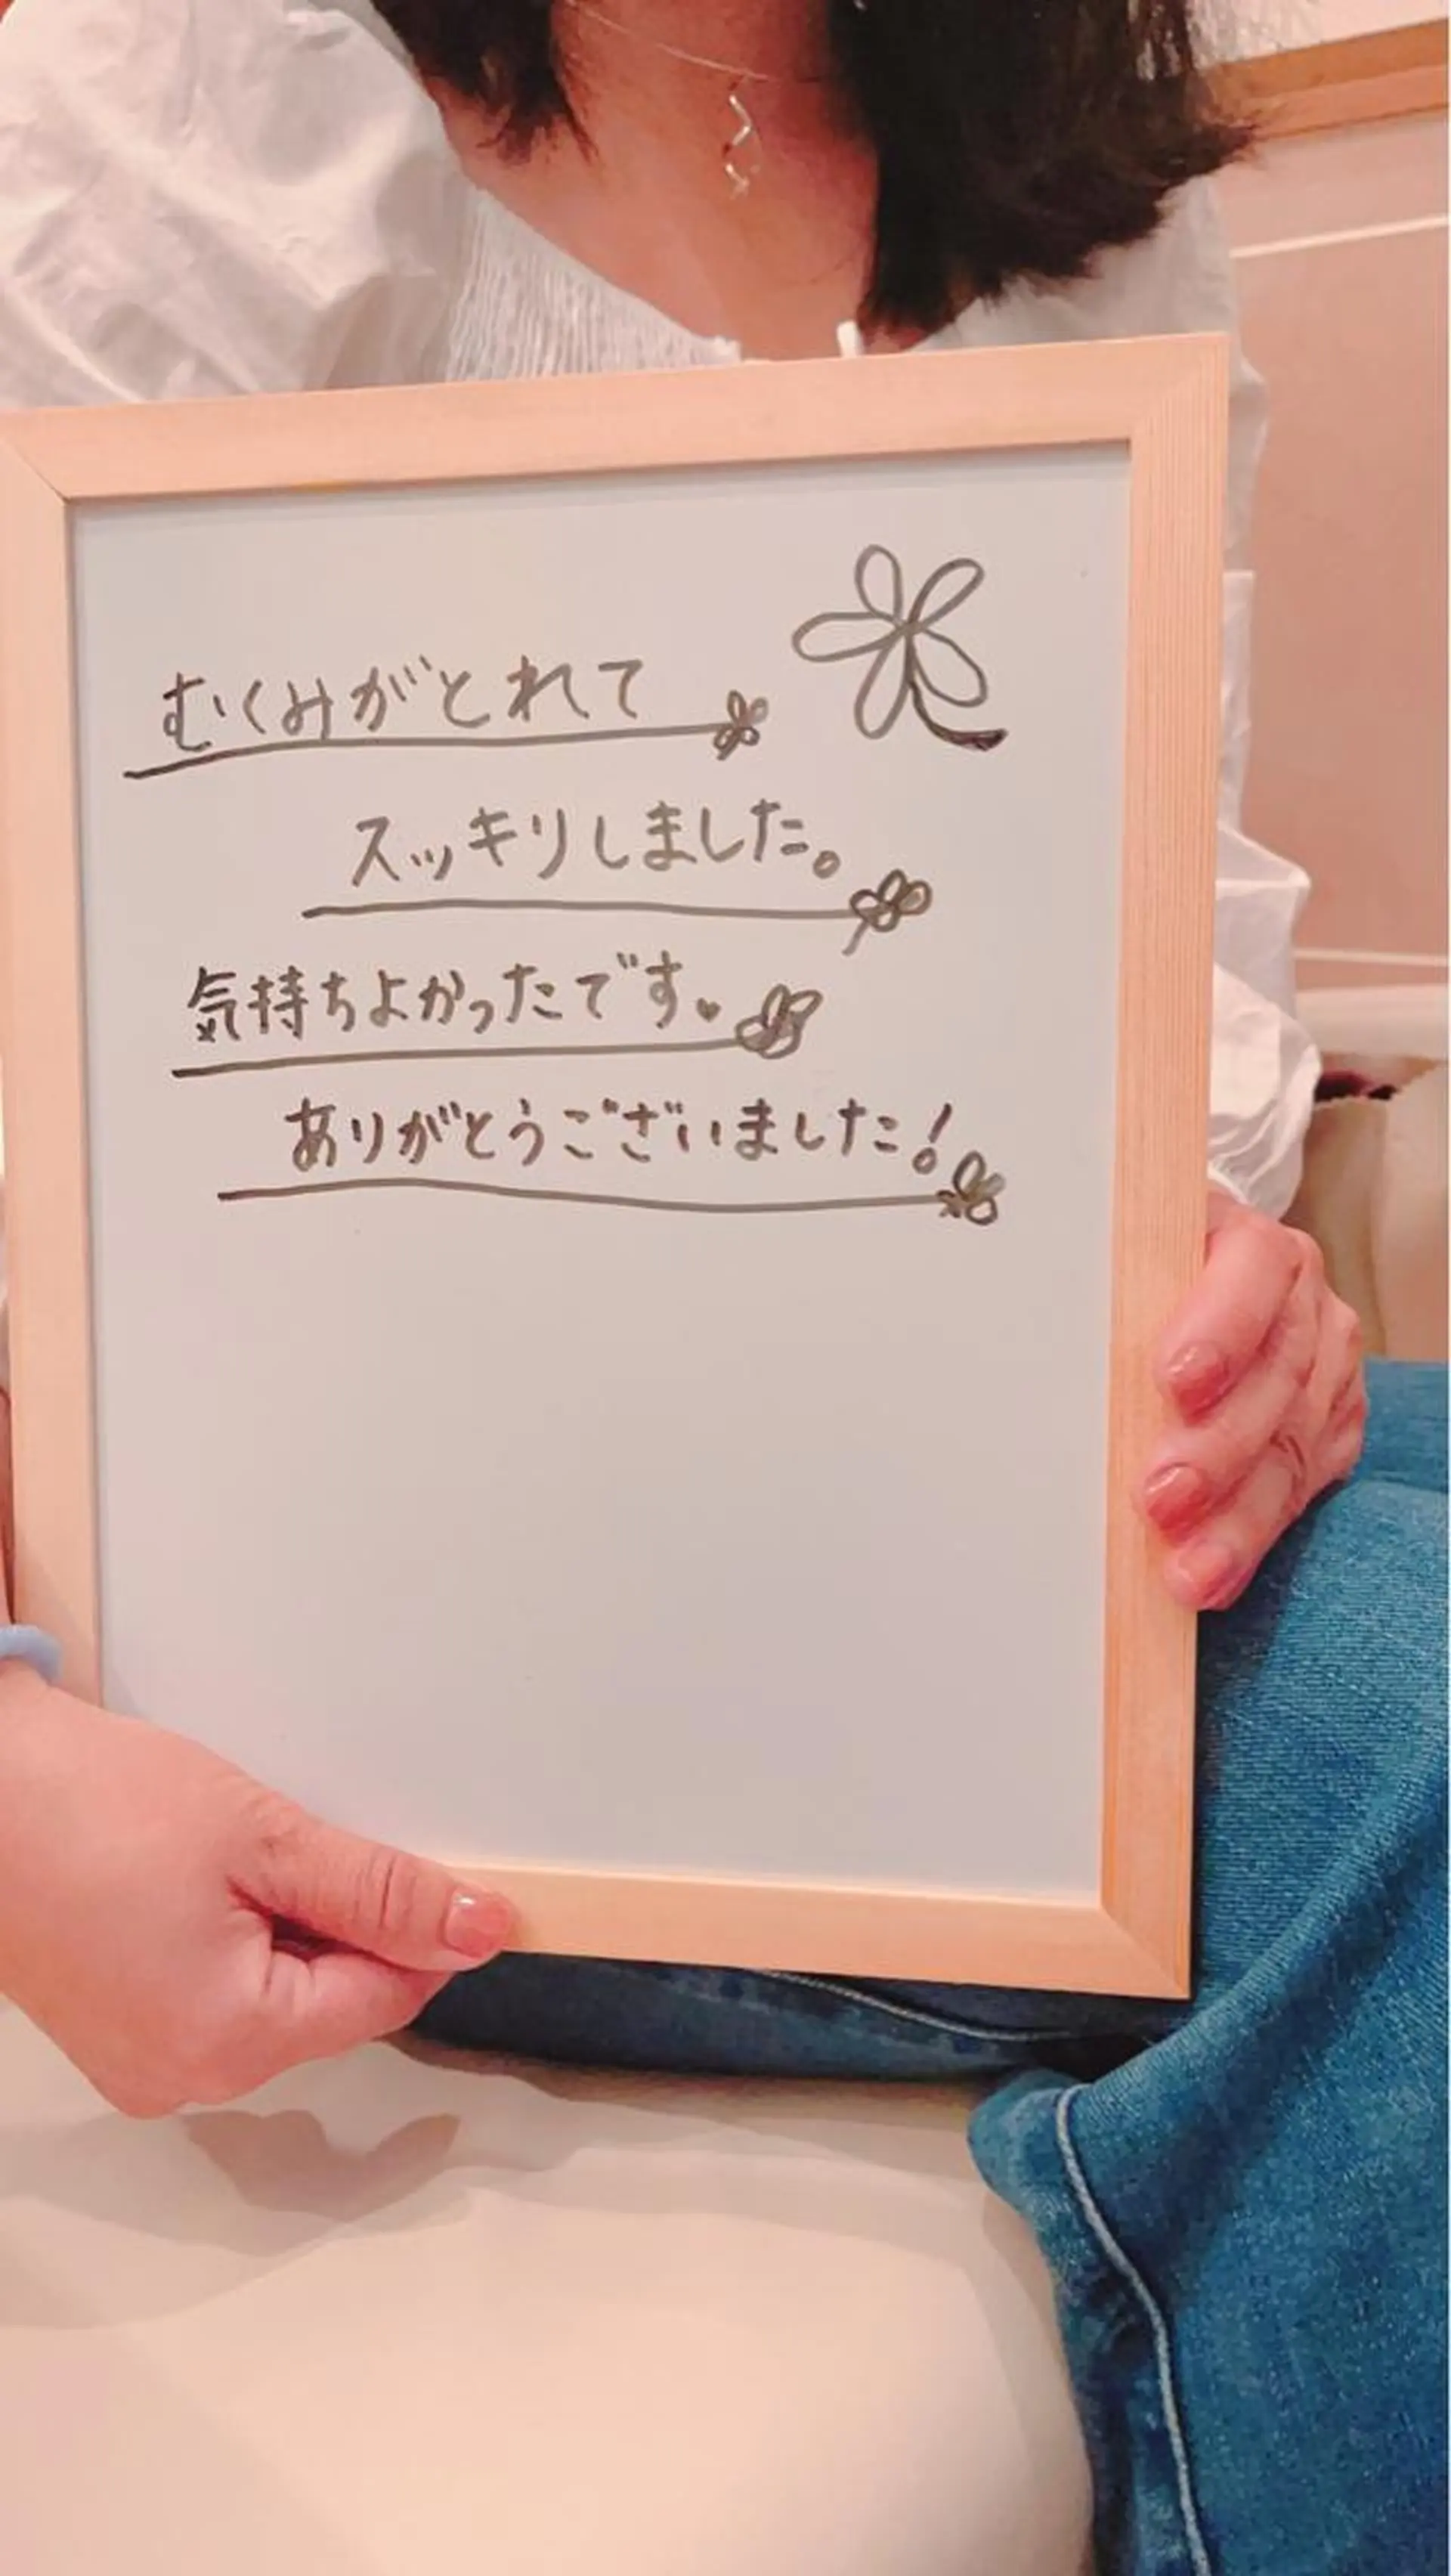 むくみがとれて
スッキリしました。
気持ちよかったです♥
ありがとうございました!